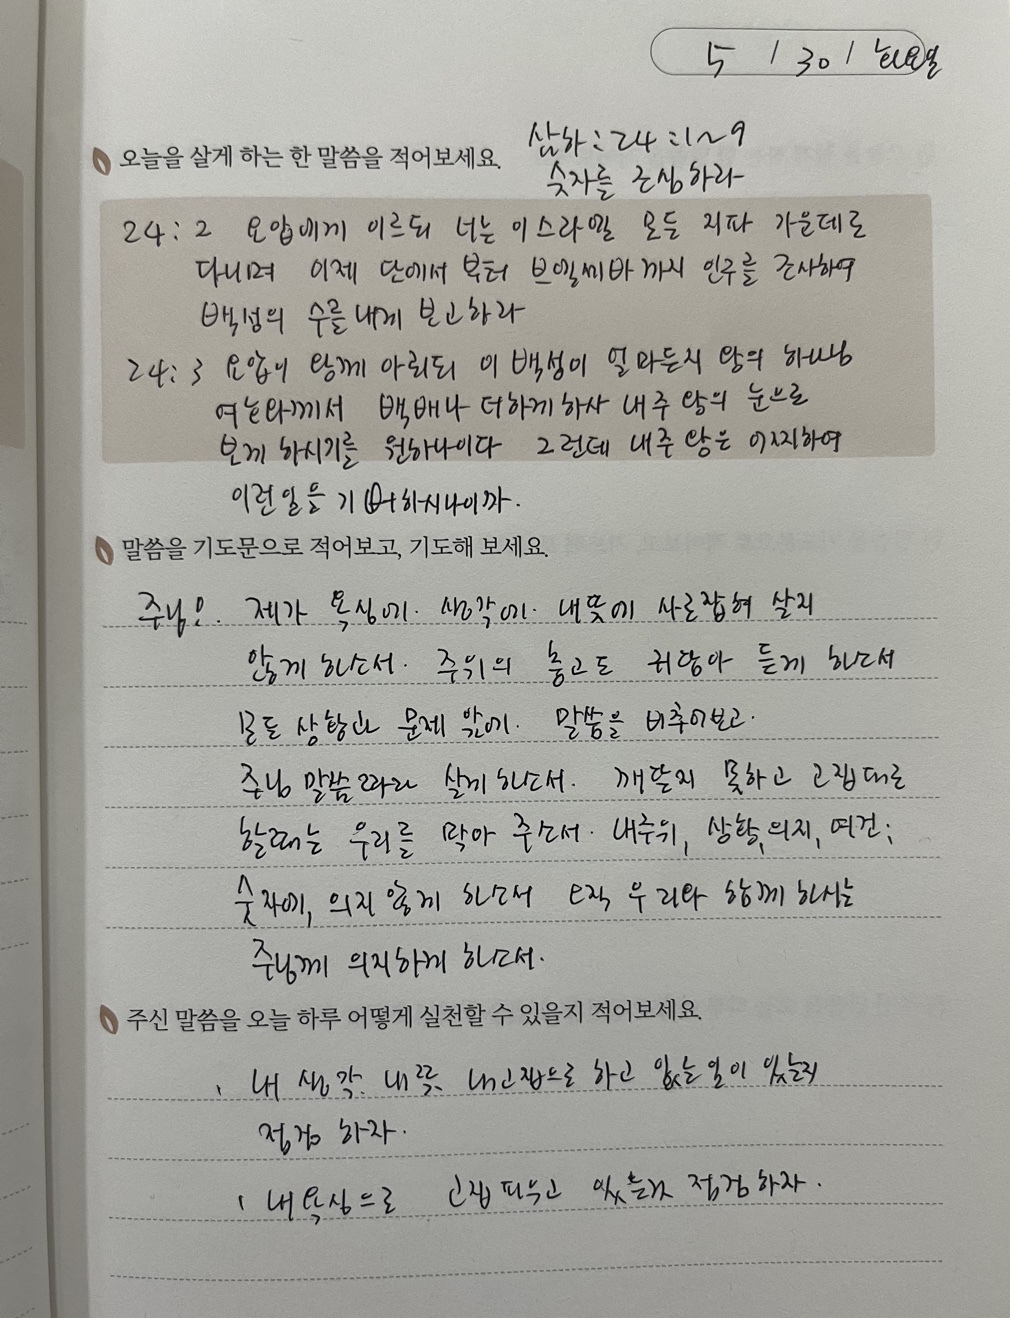 5 / 30 / 화요일
삼하:24:1~9
오늘을 살게 하는 한 말씀을 적어보세요.
숫자를 조심하라
24:2 요압에게 이르되 너는 이스라엘 모든 지파 가운데로
다니며 이제 단에서 부터 브엘세바까지 인구를 조사하여
백성의 수를 내게 보고하라
24:3 요압이 왕께 아뢰되 이 백성이 얼마든지 왕의 하나님
여호와께서 백배나 더하게 하사 내 주 왕의 눈으로
보게 하시기를 원하나이다 그런데 내 주 왕은 어찌하여
이런 일을 기뻐하시나이까.
말씀을 기도문으로 적어보고, 기도해 보세요.
주님!. 제가 욕심에. 생각에. 내뜻에 사로잡혀 살지
않게 하소서. 주위의 충고도 귀담아 듣게 하소서
모든 상황과 문제 앞에. 말씀을 비추어보고.
주님 말씀따라 살게 하소서. 깨닫지 못하고 고집대로
할때는 우리를 막아 주소서. 내주위, 상황, 의지, 여건;
숫자에, 의지 않게 하소서 오직 우리와 함께 하시는
주님께 의지하게 하소서.
주신 말씀을 오늘 하루 어떻게 실천할 수 있을지 적어보세요.
, 내 생각. 내 뜻. 내고집으로 하고 있는 일이 있는지
점검 하자.
, 내 욕심으로 고집 피우고 있는것 점검하자.